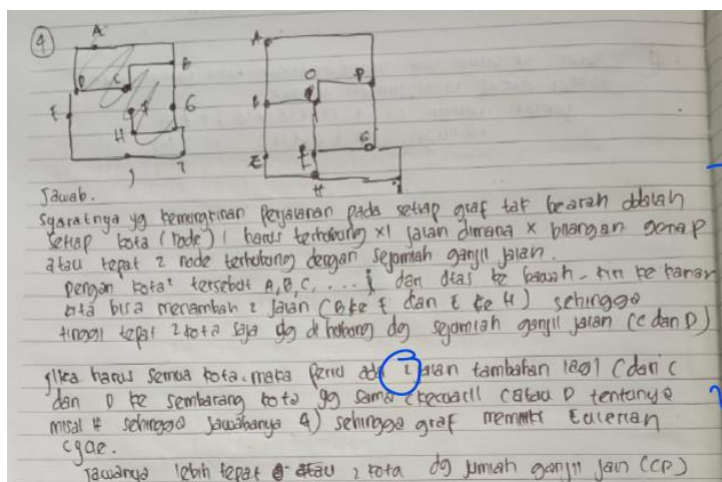 4
A
D C B
E F G
H
J I
A
C D
B
E F G
H I
Jawab.
Syaratnya yg kemungkinan perjalanan pada setiap graf tak bearah adalah
setiap kota (node) harus terhubung x1 jalan dimana x bilangan genap
atau tepat 2 node terhubung dengan sejumlah ganjil jalan.
Dengan kota² tersebut A, B, C, .... dan atas ke bawah - kiri ke kanan
kita bisa menambah 2 jalan (B ke E dan E ke H) sehingga
tinggal tepat 2 kota saja dg di hubung dg sejumlah ganjil jalan (C dan D)
jika harus semua kota. maka perlu ada 2 jalan tambahan lagi (dari C
dan D ke sembarang kota yg sama (kecuali C atau D tentunya
misal H sehingga jawabanya 4) sehingga graf memiliki Eulerian
cycle.
lebih tepat atau 2 kota dg jumlah ganjil jalan (CD)